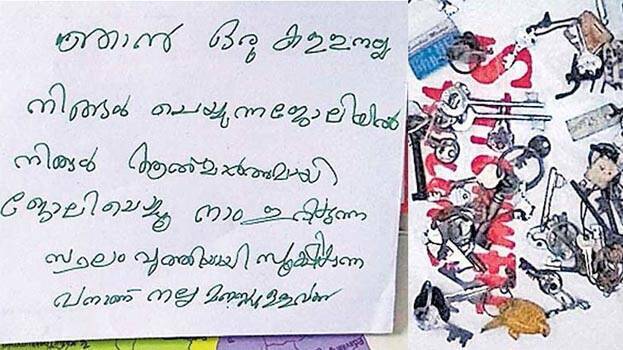 ഞാൻ ഒരു കള്ളനല്ല
നിങ്ങൾ ചെയ്യുന്ന ജോലിയിൽ
നിങ്ങൾ ആത്മാർത്ഥമായി
ജോലി ചെയ്യു നാം ഇരിക്കുന്ന
സ്ഥലം വൃത്തിയായി സൂക്ഷിക്കുന്ന
വനാണ് നല്ല മനസ്സുള്ളവൻ